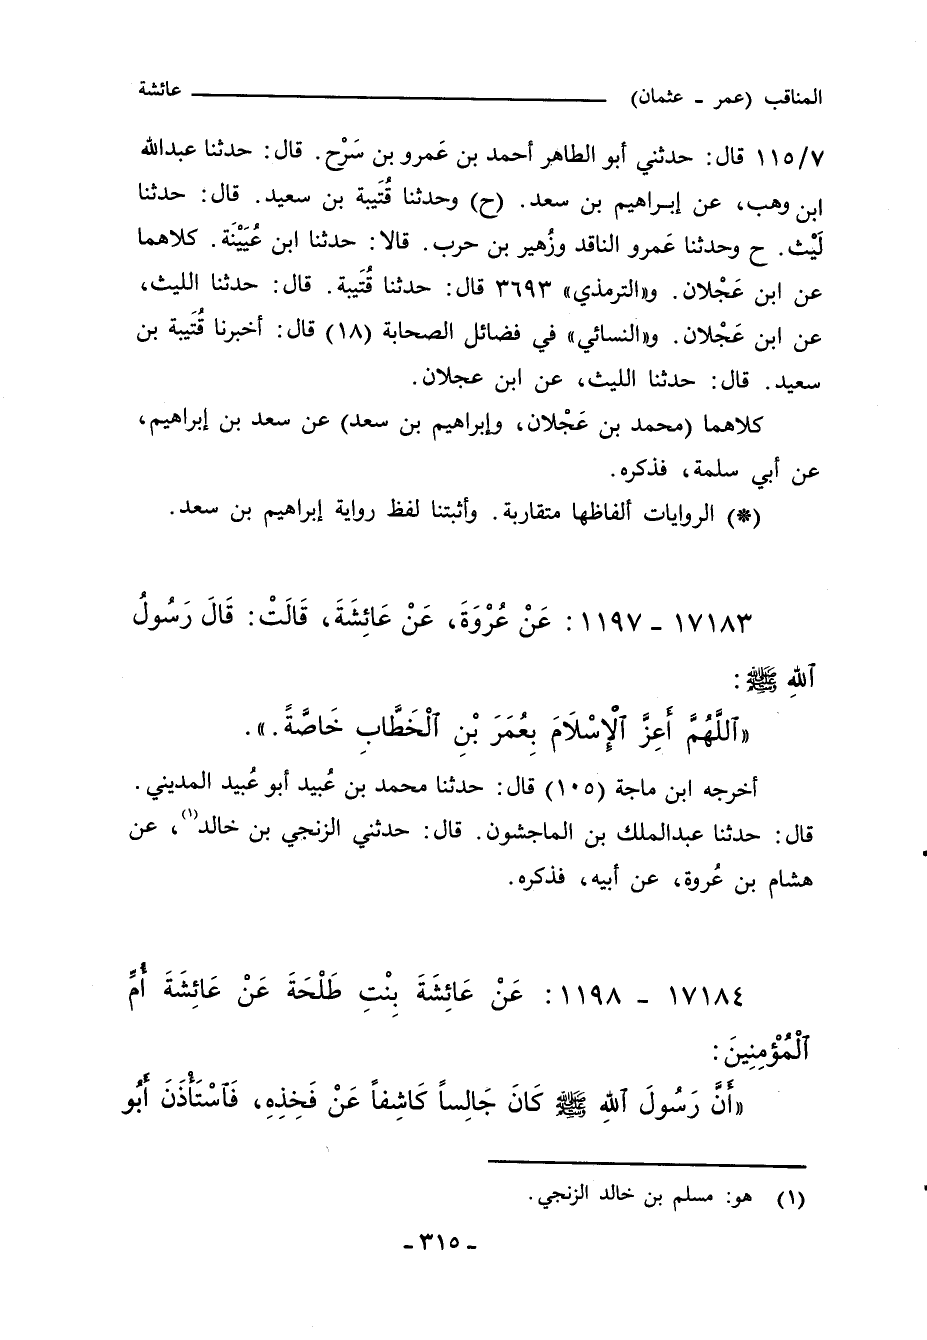 المناقب (عمر - عثمان) عائشة
١١٥/٧ قال: حدثني أبو الطاهر أحمد بن عَمرو بن سَرْح. قال: حدثنا عبدالله
ابن وهب، عن إبراهيم بن سعد. (ح) وحدثنا قُتَيبة بن سعيد. قال: حدثنا
لَيْث. ح وحدثنا عَمرو الناقد وزُهير بن حرب. قالا: حدثنا ابن عُيَيْنَة. كلاهما
عن ابن عَجْلان. و«الترمذي» ٣٦٩٣ قال: حدثنا قُتَيبة. قال: حدثنا الليث،
عن ابن عَجْلان. و«النسائي» في فضائل الصحابة (١٨) قال: أخبرنا قُتَيبة بن
سعيد. قال: حدثنا الليث، عن ابن عجلان.
كلاهما (محمد بن عَجْلان، وإبراهيم بن سعد) عن سعد بن إبراهيم،
عن أبي سلمة، فذكره.
(*) الروايات ألفاظها متقاربة. وأثبتنا لفظ رواية إبراهيم بن سعد.
١٧١٨٣ - ١١٩٧: عَنْ عُرْوَةَ، عَنْ عَائِشَةَ، قَالَتْ: قَالَ رَسُولُ
ٱللهِ ﷺ:
«ٱللَّهُمَّ أَعِزَّ ٱلْإِسْلَامَ بِعُمَرَ بْنِ ٱلْخَطَّابِ خَاصَّةً.».
أخرجه ابن ماجة (١٠٥) قال: حدثنا محمد بن عُبيد أبو عُبيد المديني.
قال: حدثنا عبدالملك بن الماجشون. قال: حدثني الزنجي بن خالد(١)، عن
هشام بن عُروة، عن أبيه، فذكره.
١٧١٨٤ - ١١٩٨: عَنْ عَائِشَةَ بِنْتِ طَلْحَةَ عَنْ عَائِشَةَ أُمِّ
ٱلْمُؤْمِنِينَ:
«أَنَّ رَسُولَ ٱللهِ ﷺ كَانَ جَالِساً كَاشِفاً عَنْ فَخِذِهِ، فَٱسْتَأْذَنَ أَبُو
(١) هو: مسلم بن خالد الزنجي.
- ٣١٥ -